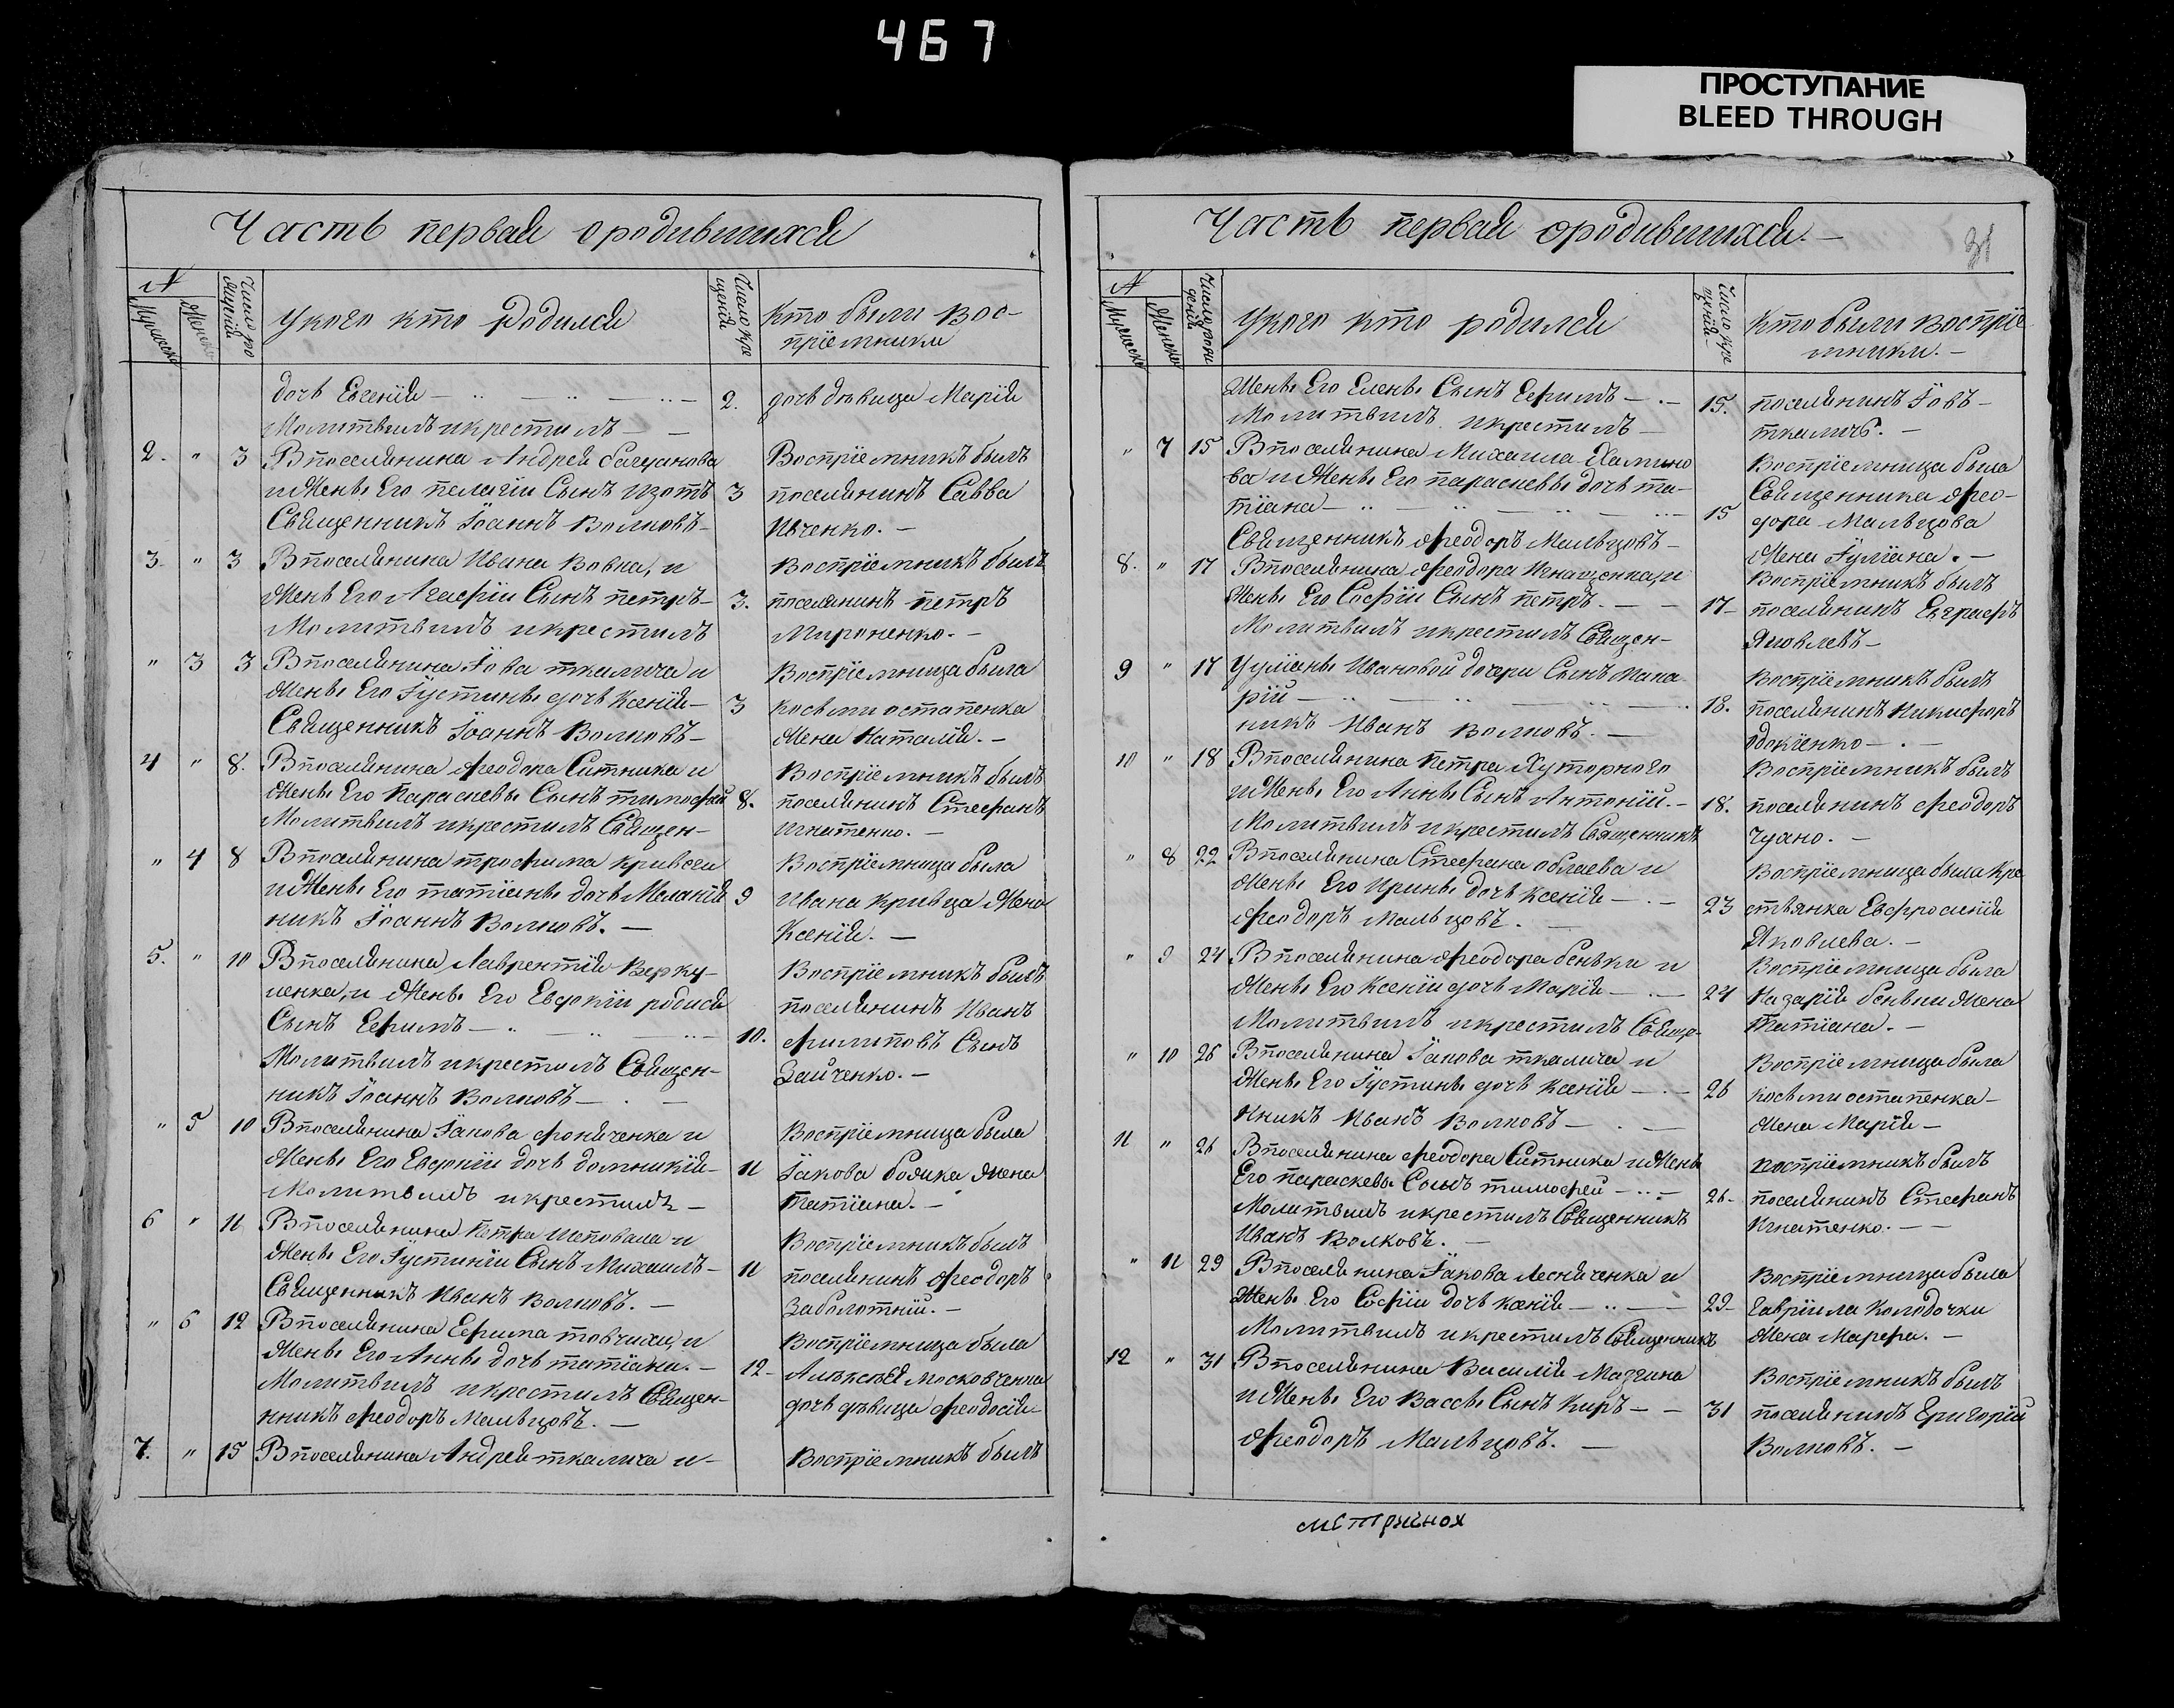 467
ПРОСТУПАНИЕ
BLEED THROUGH
Часть первая ородившихся
№ Мужеска Женска
Число рождений
Укого кто родился
Число крещеній
Кто были Вос-
пріемники
дочь Евгенія 2. дочь девица Марія
Молитвилъ икрестилъ
2. " 3 Впоселянина Андрея Воспріемникъ былъ
иЖены Его пелагіи Сынъ изотъ 3 поселянинъ Савва
Священникъ Іоаннъ Волковъ Ивченко. —
3. " 3 Впоселянина Ивана Вовка, и Воспріемникъ былъ
Жены Его Агафіи Сынъ петръ 3. поселянинъ петръ
Молитвилъ икрестилъ Мироненко. —
" 3 3 Впоселянина Іова ткалича и Воспріемница была
Жены Его Іустины дочь Ксенія 3 косьми остапенка
Священникъ Іоаннъ Волковъ Жена Наталія. —
4 " 8. Впоселянина Феодора Ситника и Воспріемникъ былъ
Жены Его Параскевы Сынъ тимофей 8. поселянинъ Стефанъ
Молитвилъ икрестилъ Священ- Игнатенко. —
" 4 8 Впоселянина трофима Воспріемница была
иЖены Его татіаны дочь Меланія 9 Ивана кривца Жена
никъ Іоаннъ Волковъ. — Ксенія. —
5. " 10 Впоселянина Лаврентія Верку- Воспріемникъ былъ
ленка, и Жены Его Евдокіи родися поселянинъ Иванъ
Сынъ Ефимъ 10. филиповъ Сынъ
Молитвилъ икрестилъ Священ- Зайченко. —
никъ Іоаннъ Волковъ
" 5 10 Впоселянина Іакова и Воспріемница была
Жены Его Евдокіи дочь домникія 11 Іакова Жена
Молитвилъ икрестилъ Татіана. —
6 " 11 Впоселянина Петра Шеповала и Воспріемникъ былъ
Жены Его Іустиніи Сынъ Михаилъ 11 поселянинъ Феодоръ
Священникъ Иванъ Волковъ. — Заболотній. —
" 6 12 Впоселянина Ефима и Воспріемница была
Жены Его Анны дочь татіана. — 12 Алексея Московченка
Молитвилъ икрестилъ Священ- дочь девица Феодосія
нникъ Феодоръ Мальцовъ. —
7. " 15 Впоселянина Андрея ткалича и Воспріемникъ былъ
Часть первая ородившихся. —
31
№ Мужеска Женска
Число рождений
Укого кто родился
Число крещеній
Кто были Воспріе
мники. —
Жены Его Елены Сынъ Ефимъ 15. поселянинъ Іовъ
Молитвилъ икрестилъ ткаличъ. —
" 7 15 Впоселянина Михаила Воспріемница была
ва и Жены Его параскевы дочь та- Священника Фео-
тіана 15 дора Мальцова
Священникъ Феодоръ Мальцовъ Жена Іуліана. —
8. " 17 Впоселянина Феодора Игнащенка, и Воспріемникъ былъ
Жены Его Софіи Сынъ петръ. 17 поселянинъ Евграфъ
Молитвилъ икрестилъ Священ- Яковлевъ
9 " 17 Ууліаны Ивановой дочери Сынъ Мака Воспріемникъ былъ
рій 18. поселянинъ Никифоръ
никъ Иванъ Волковъ. —
10 " 18 Впоселянина Петра Хуторного Воспріемникъ былъ
иЖены Его Анны Сынъ Антоній. — 18. поселянинъ Феодоръ
Молитвилъ икрестилъ Священникъ
" 8 22 Впоселянина Стефана и Воспріемница была кре
Жены Его Ирины дочь Ксенія 23 стьянка Евфросинія
Феодоръ Мальцовъ. Яковлева. —
" 9 24 Впоселянина Феодора беньки и Воспріемница была
Жены Его Ксеніи дочь Марія 24 Назарія беньки Жена
Молитвилъ икрестилъ Свяще- Татіана. —
" 10 26 Впоселянина Іакова ткалича и Воспріемница была
Жены Его Іустины дочь Ксенія 26 косьми остапенка
нникъ Иванъ Волковъ Жена Марія
11 " 26 Впоселянина Феодора Ситника иЖены Воспріемникъ былъ
Его параскевы Сынъ тимофей 26 поселянинъ Стефанъ
Молитвилъ икрестилъ Священникъ Игнатенко. —
Иванъ Волковъ. —
" 11 29 Впоселянина Іакова Лесниченка и Воспріемница была
Жены Его Софіи дочь Ксенія 29 Гавріила Колодочки
Молитвилъ икрестилъ Священникъ Жена Марфа. —
12 " 31 Впоселянина Василія Воспріемникъ былъ
иЖены Его Вассы Сынъ Киръ 31 поселянинъ Григорій
Феодоръ Мальцовъ. — Волковъ. —